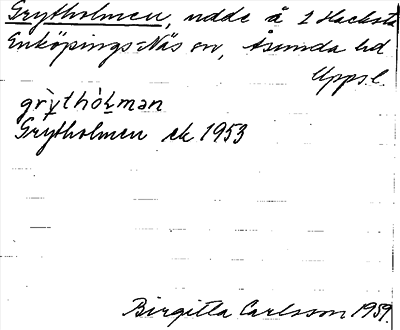 Grytholmen, udde å 1 Hacksta
Enköpings-Näs sn, Åsunda hd
Upps.l.
grỳthòḷmən
Grytholmen ek 1953
Birgitta Carlsson 1959.